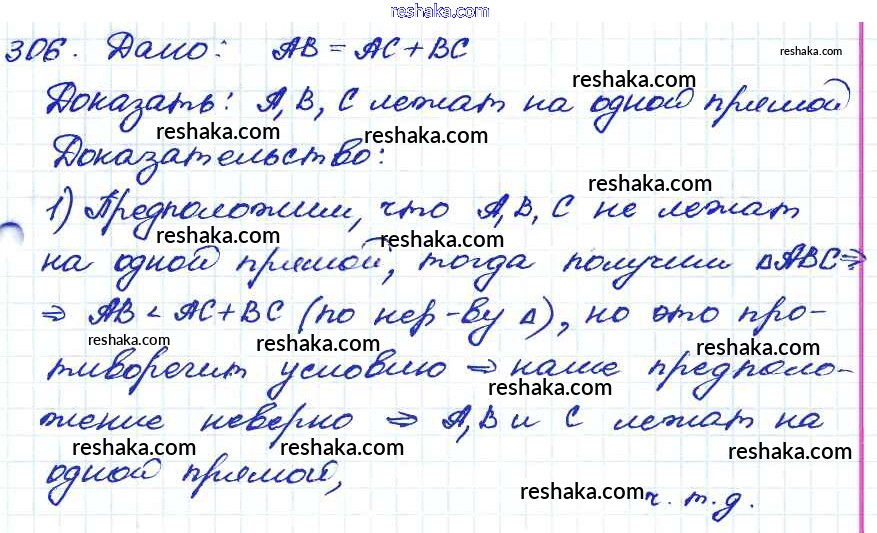 reshaka.com
306. Дано: AB = AC + BC
reshaka.com
reshaka.com
Доказать: A, B, C лежат на одной прямой
reshaka.com reshaka.com
Доказательство:
reshaka.com
1) Предположим, что A, B, C не лежат
reshaka.com reshaka.com
на одной прямой, тогда получим ΔABC ⇒
⇒ AB < AC + BC (по нер-ву Δ), но это про-
reshaka.com reshaka.com reshaka.com
тиворечит условию ⇒ наше предполо-
reshaka.com
жение неверно ⇒ A, B и C лежат на
reshaka.com reshaka.com reshaka.com
одной прямой,
reshaka.com ч. т. д.